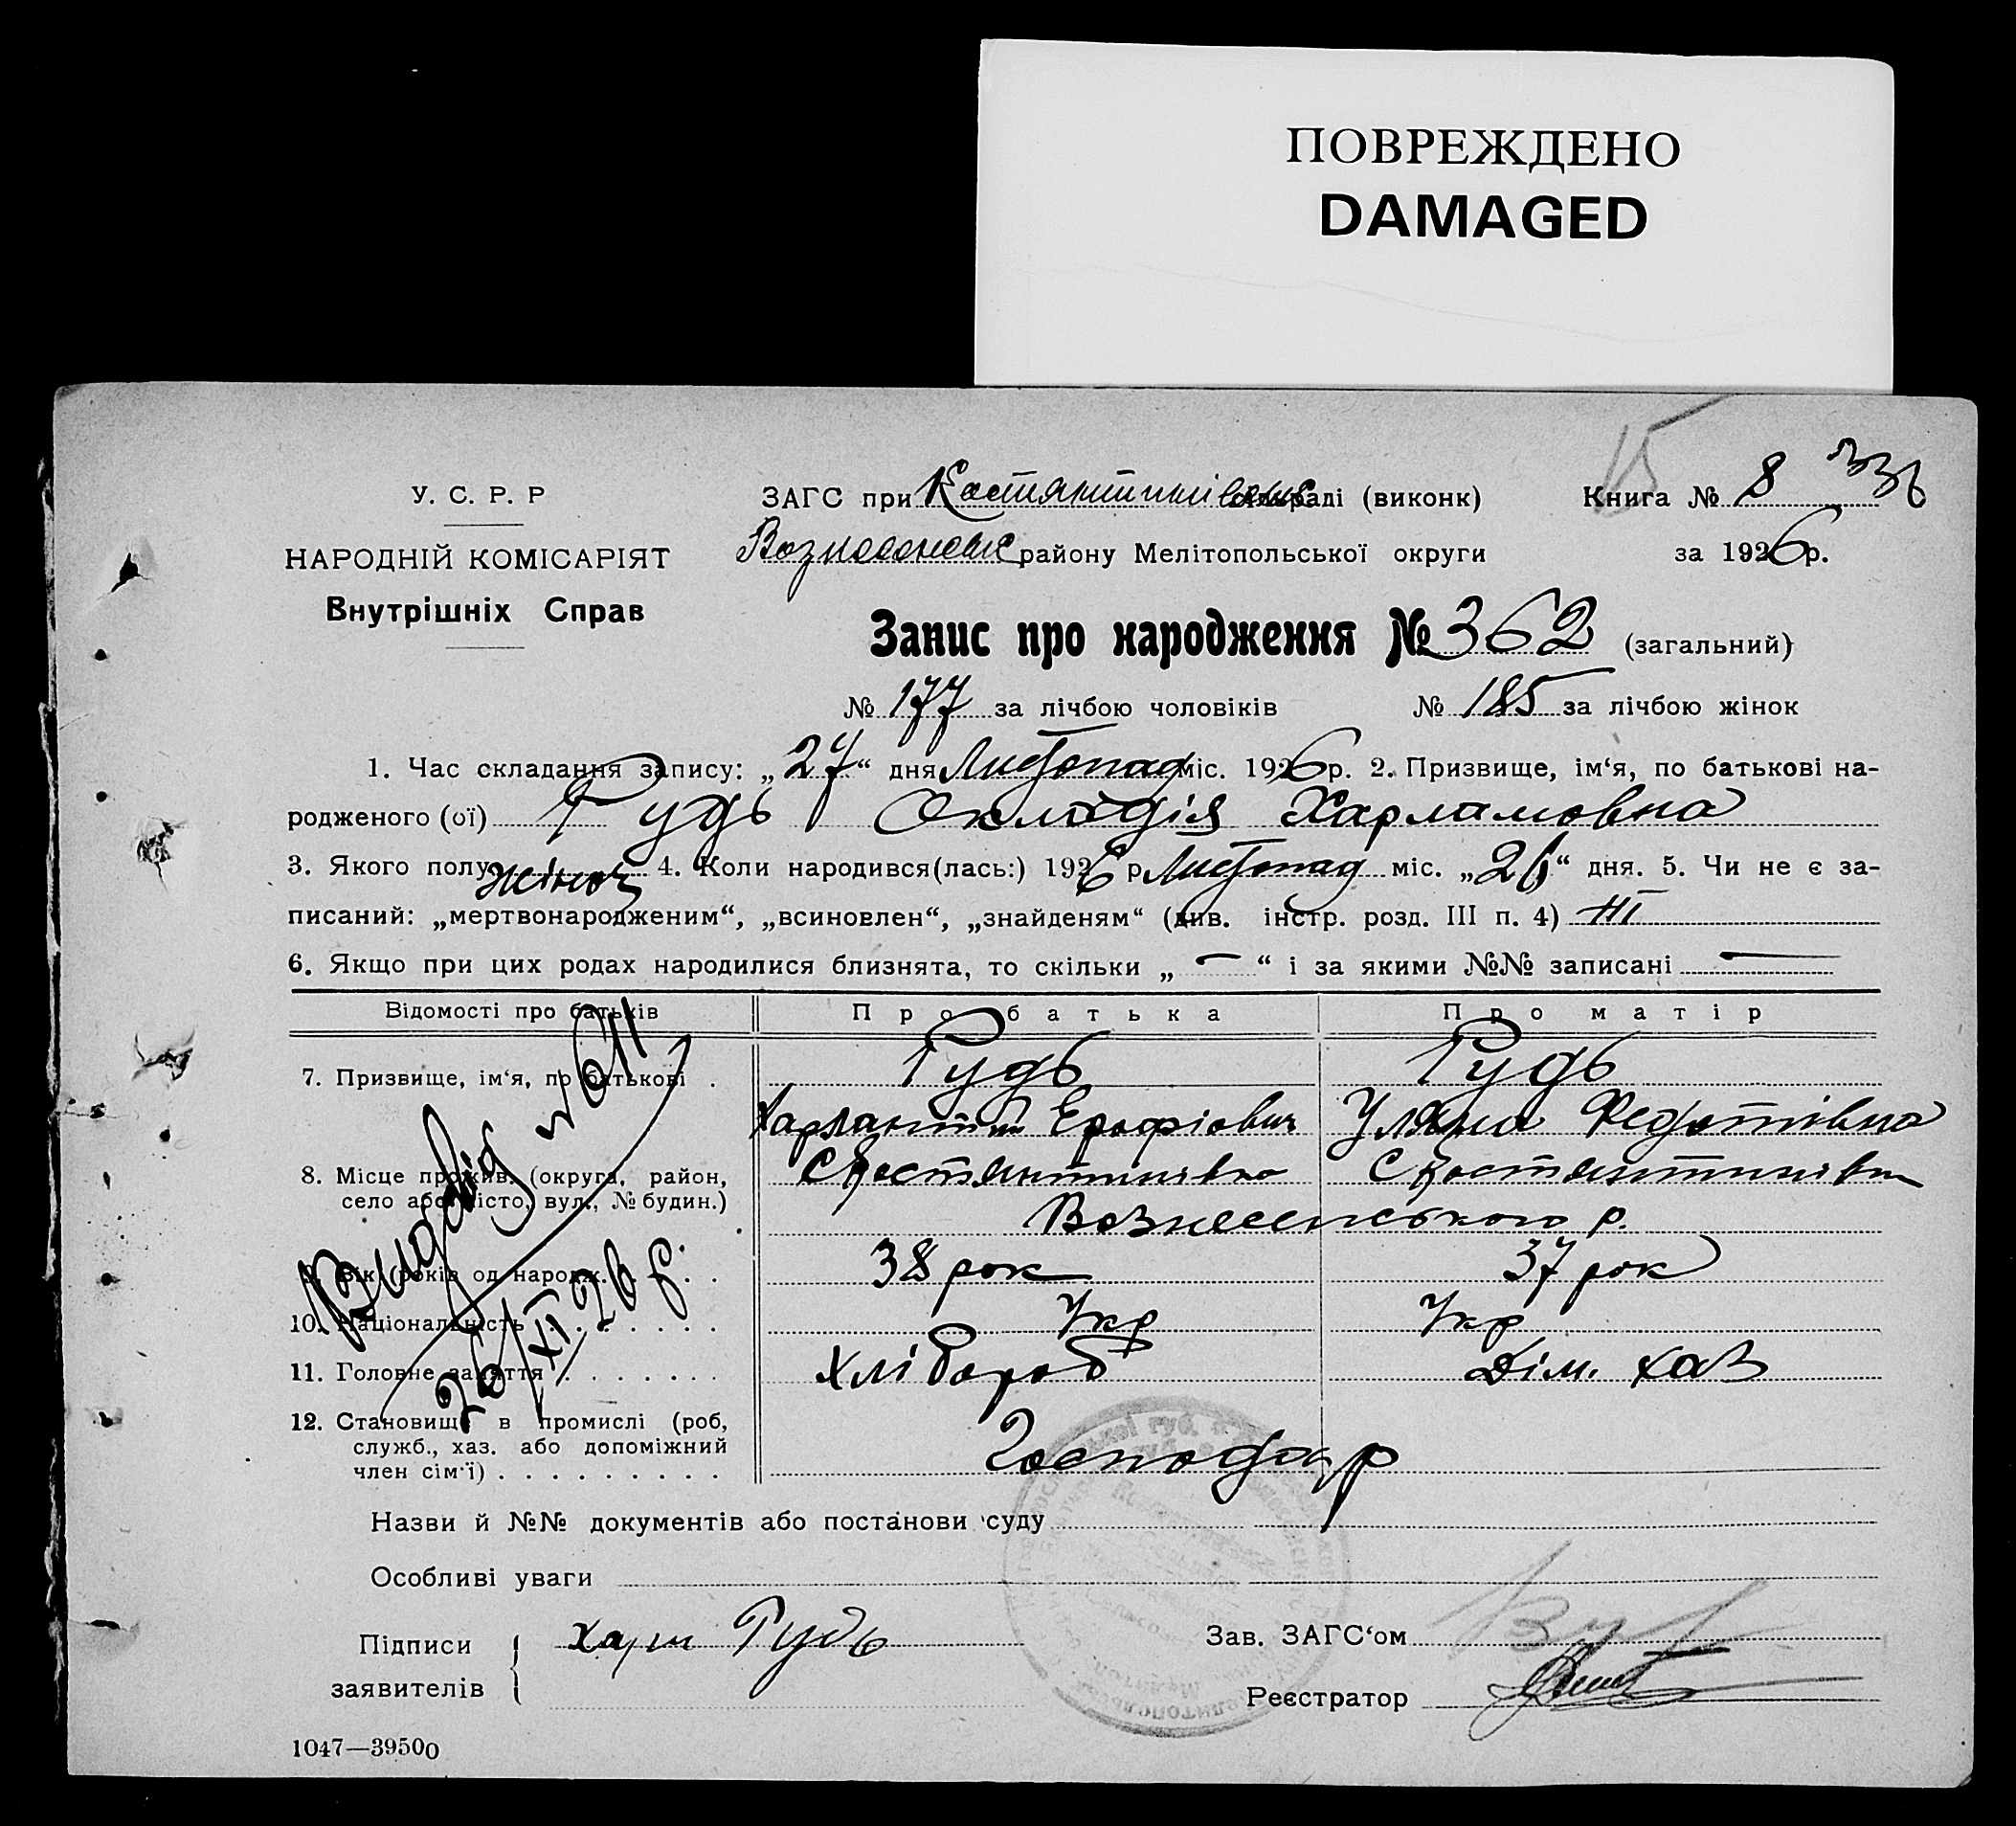 ПОВРЕЖДЕНО
DAMAGED
15
У. С. Р. Р ЗАГС при Костянтинівськ сільраді (виконк) Книга № 8 336
Вознесенськ району Мелітопольської округи за 1926 р.
НАРОДНІЙ КОМІСАРІЯТ
Внутрішніх Справ
Запис про народження № 362 (загальний)
№ 177 за лічбою чоловіків № 185 за лічбою жінок
1. Час складання запису: „27“ дня Листопад міс. 1926 р. 2. Призвище, ім‘я, по батькові на-
родженого (ої) Рудь Харламовна
3. Якого полу жіноч 4. Коли народився(лась:) 1926 р Листопад міс. „26“ дня. 5. Чи не є за-
писаний: „мертвонародженим“, „всиновлен“, „знайденям“ (див. інстр. розд. III п. 4) Ні
6. Якщо при цих родах народилися близнята, то скільки „—“ і за якими №№ записані —
Відомості про батьків Про батька Про матір
7. Призвище, ім‘я, по батькові . Рудь Рудь
Харлантий Ерофіович Уляна Федотівна
8. Місце прожив. (округа, район, С Костянтинівка С Костянтинівка
село або місто, вул., № будин.)
Вознесенського р.
9. Вік (років од народж. . . . 38 рок 37 рок
10. Національність . . . . . . . Укр Укр
11. Головне заняття . . . . . . . Хлібороб Дім. хаз
12. Становище в промислі (роб,
служб., хаз. або допоміжний
член сім‘ї) . . . . . . . . . Господар
Видовід № 611
26/XI 26 р.
Назви й №№ документів або постанови суду
Особливі уваги
Підписи Харл Рудь Зав. ЗАГС‘ом
заявителів Реєстратор
1047—39500